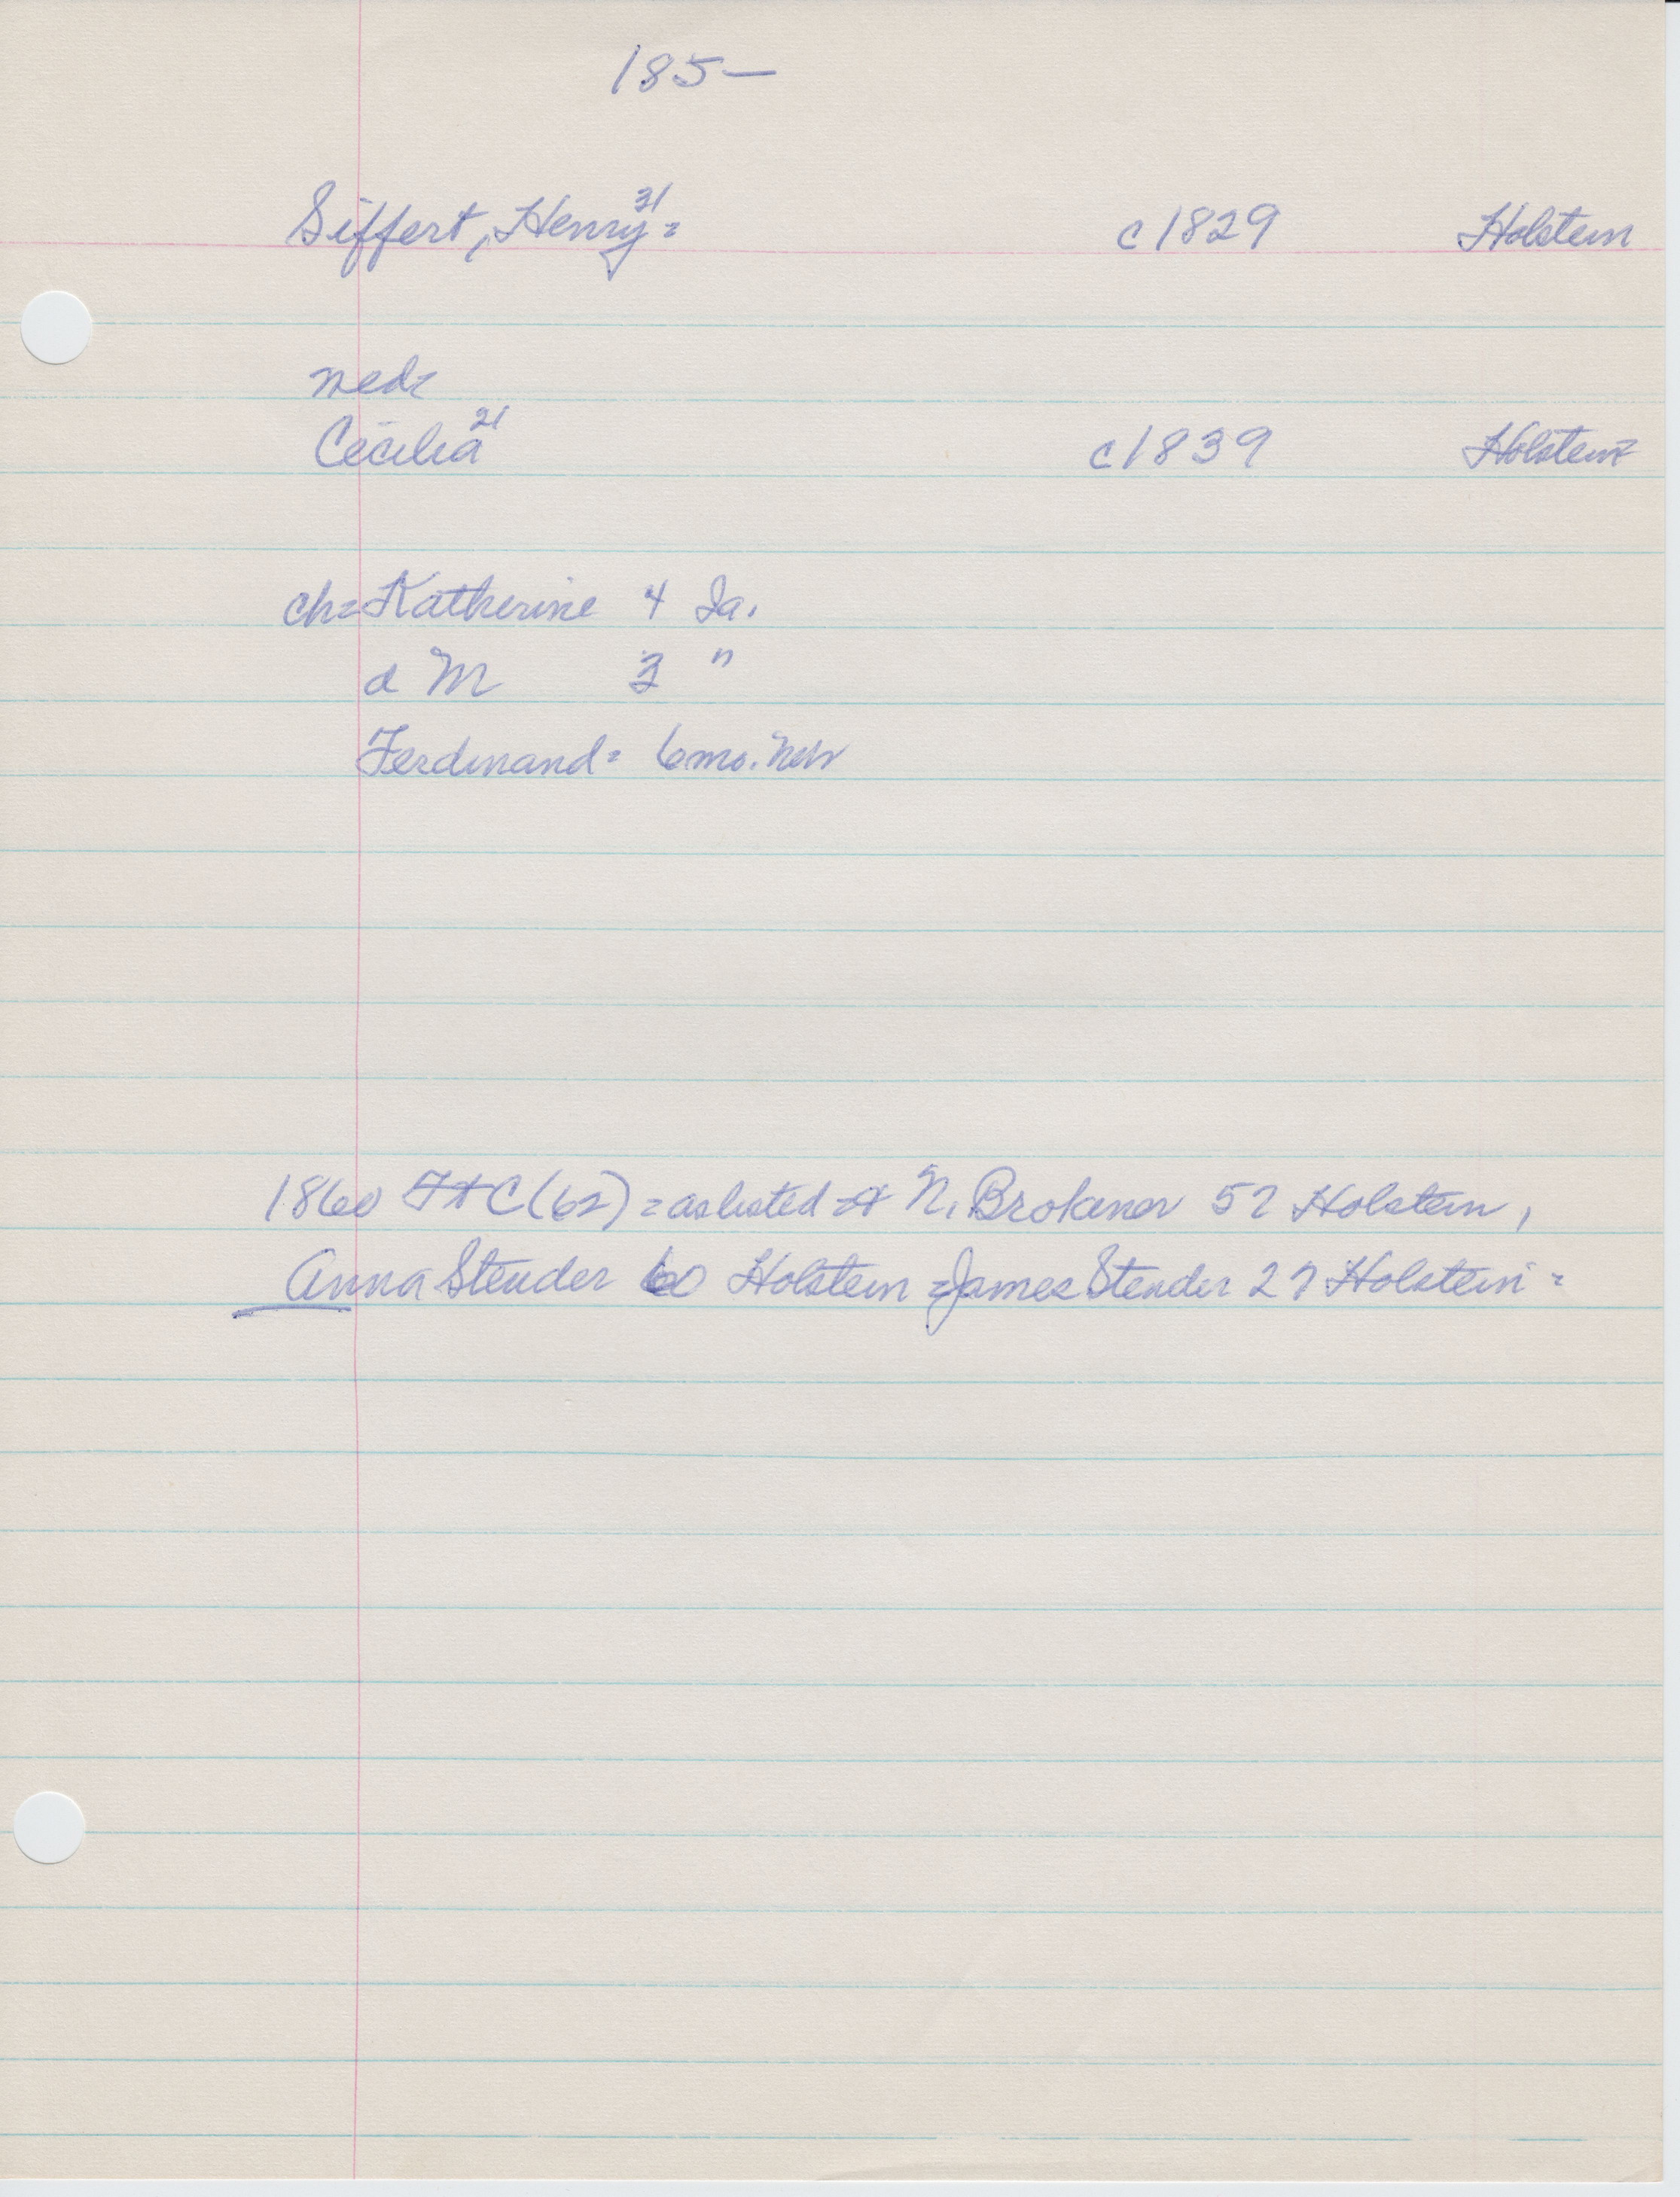 185-
Siffert, Henry 31 = c1829 Holstein
med=
Cecilia 21 c1839 Holstein
ch= Katherine 4 Ia.
d M 3 "
Ferdinand = 6 mo. Neb
1860 (62) = as listed N. Brokaner 57 Holstein,
Anna Stender 60 Holstein = James Stender 27 Holstein =